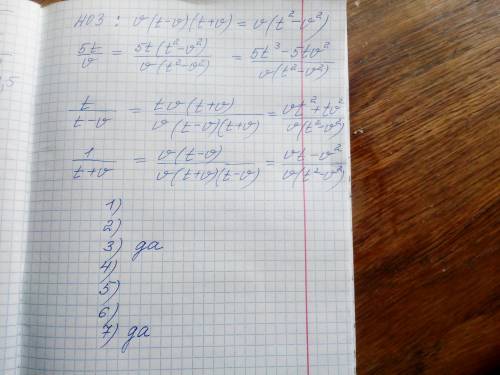 НОЗ : v(t-v)(t+v) = v(t²-v²)
5t/v = 5t(t²-v²)/v(t²-v²) = 5t³-5tv²/v(t²-v²)
t/t-v = tv(t+v)/v(t-v)(t+v) = vt²+tv²/v(t²-v²)
1/t+v = v(t-v)/v(t+v)(t-v) = vt-v²/v(t²-v²)
1)
2)
3) да
4)
5)
6)
7) да